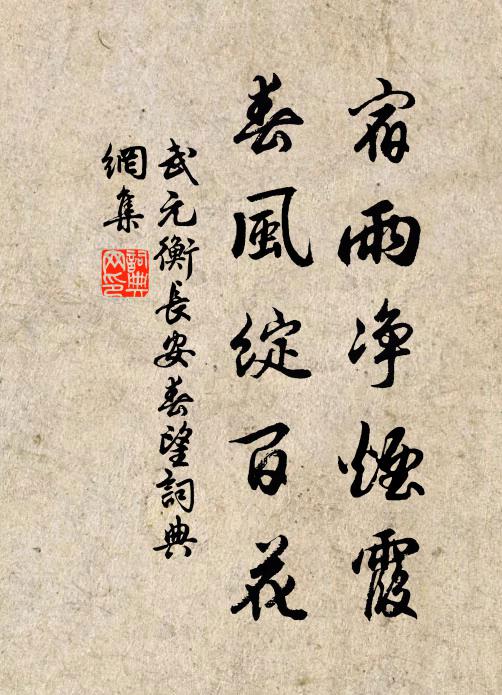 宿雨净煙霞
春風綻百花
武元衡長安春望詞典
網集
詞典网印